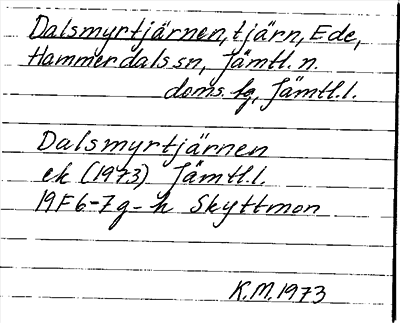 Dalsmyrtjärnen, tjärn, Ede,
Hammerdals sn, Jämtl. n.
doms. fg, Jämtl. l.
Dalsmyrtjärnen
ek (1973) Jämtl. l.
19F6-7g-h Skyttmon
K.M. 1973